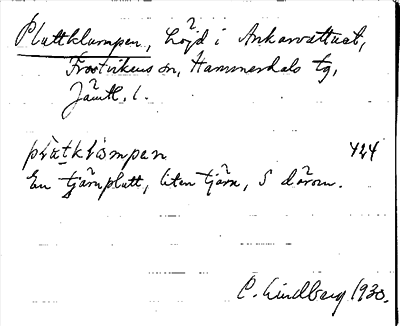 Plattklumpen, höjd i Ankarvattnet,
Frostvikens sn, Hammerdals tg,
Jämtl. l.
plàtklómpen 424
En tjärnplatt, liten tjärn, S därom.
C. Lindberg 1930.